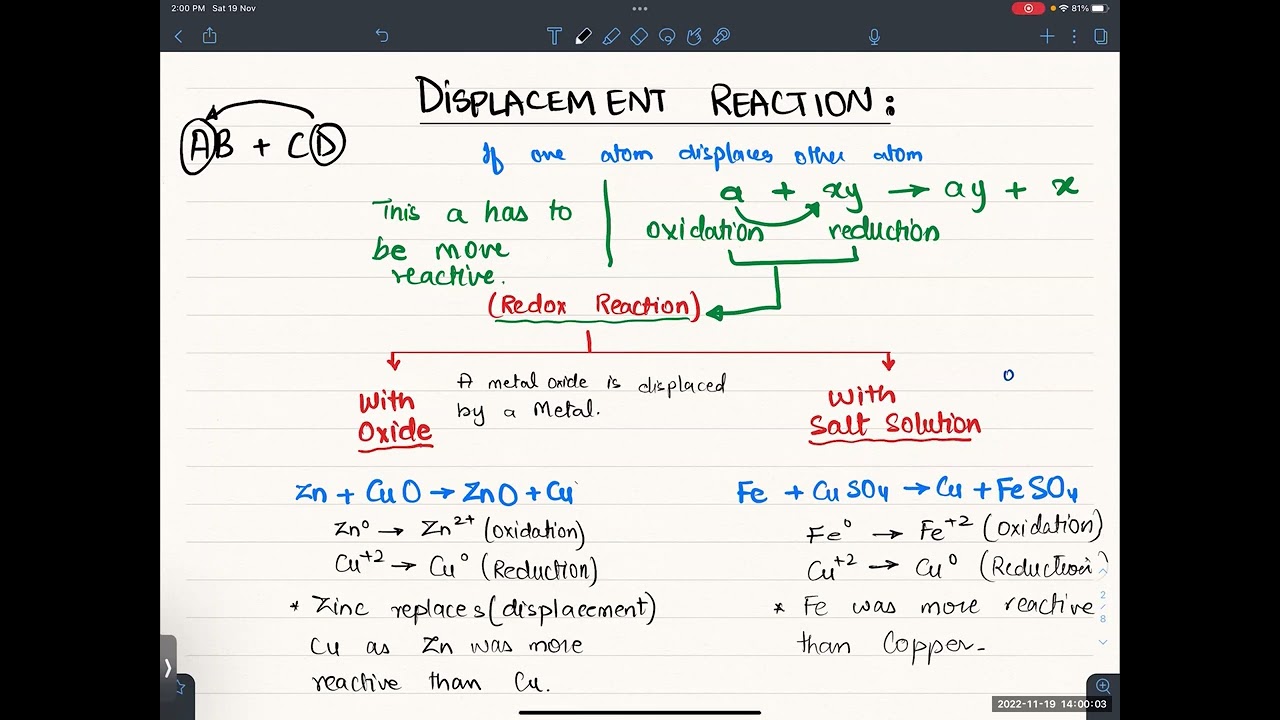 2:00 PM Sat 19 Nov
81%
DISPLACEMENT REACTION:
AB + CD
If one atom displaces other atom
a + xy → ay + x
This a has to
be more
reactive.
oxidation reduction
(Redox Reaction)
With
Oxide
A metal oxide is displaced
by a Metal.
With
Salt Solution
Zn + CuO → ZnO + Cu
Zn⁰ → Zn²⁺ (Oxidation)
Cu⁺² → Cu⁰ (Reduction)
* Zinc replaces (displacement)
Cu as Zn was more
reactive than Cu.
Fe + CuSO₄ → Cu + FeSO₄
Fe⁰ → Fe⁺² (Oxidation)
Cu⁺² → Cu⁰ (Reduction)
* Fe was more reactive
than Copper-
2
/
8
2022-11-19 14:00:03